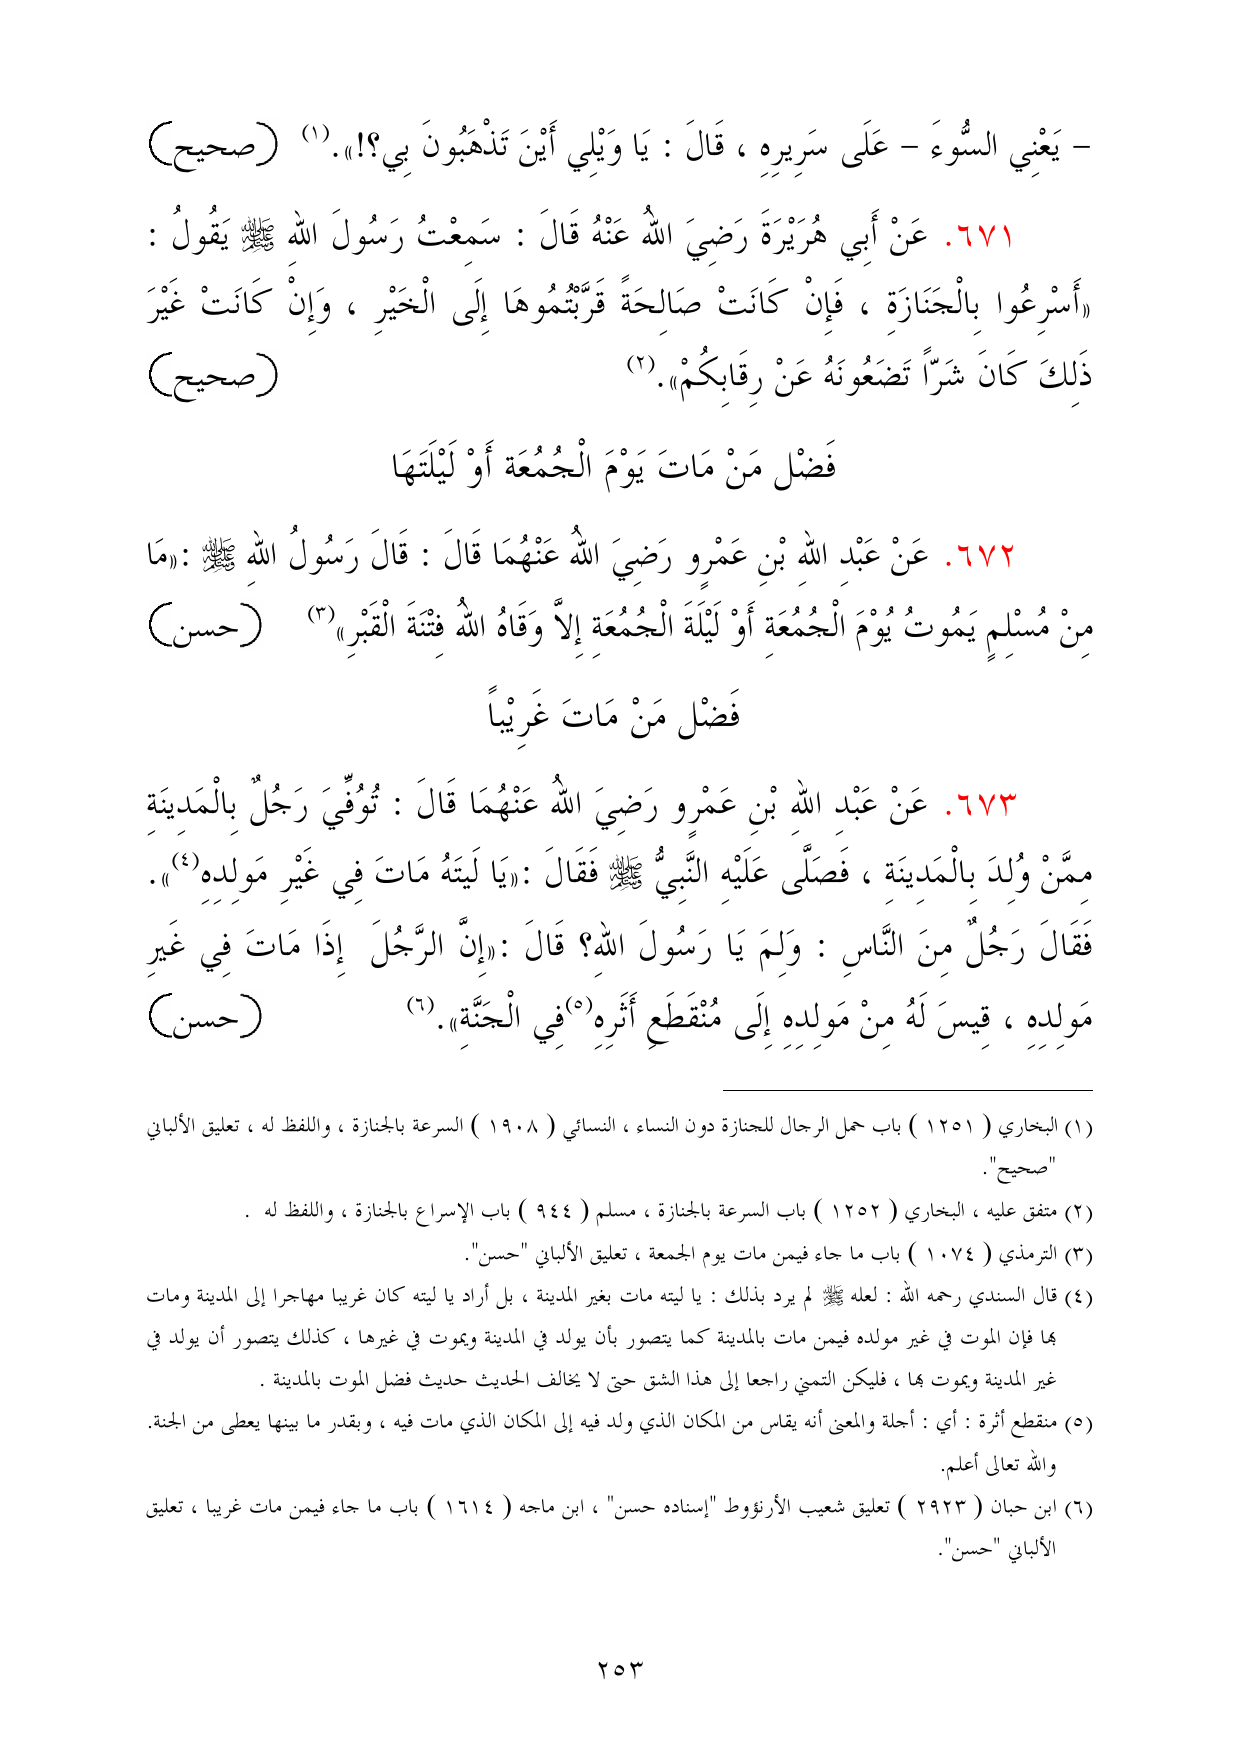 – يَعْنِي السُّوءَ – عَلَى سَرِيرِهِ ، قَالَ : يَا وَيْلِي أَيْنَ تَذْهَبُونَ بِي؟!». (١) (صحيح)
٦٧١. عَنْ أَبِي هُرَيْرَةَ رَضِيَ اللهُ عَنْهُ قَالَ : سَمِعْتُ رَسُولَ اللهِ ﷺ يَقُولُ :
«أَسْرِعُوا بِالْجَنَازَةِ ، فَإِنْ كَانَتْ صَالِحَةً قَرَّبْتُمُوهَا إِلَى الْخَيْرِ ، وَإِنْ كَانَتْ غَيْرَ
ذَلِكَ كَانَ شَرّاً تَضَعُونَهُ عَنْ رِقَابِكُمْ». (٢) (صحيح)
فَضْل مَنْ مَاتَ يَوْمَ الْجُمُعَة أَوْ لَيْلَتَهَا
٦٧٢. عَنْ عَبْدِ اللهِ بْنِ عَمْرٍو رَضِيَ اللهُ عَنْهُمَا قَالَ : قَالَ رَسُولُ اللهِ ﷺ :«مَا
مِنْ مُسْلِمٍ يَمُوتُ يُوْمَ الْجُمُعَةِ أَوْ لَيْلَةَ الْجُمُعَةِ إِلاَّ وَقَاهُ اللهُ فِتْنَةَ الْقَبْرِ» (٣) (حسن)
فَضْل مَنْ مَاتَ غَرِيْباً
٦٧٣. عَنْ عَبْدِ اللهِ بْنِ عَمْرٍو رَضِيَ اللهُ عَنْهُمَا قَالَ : تُوُفِّيَ رَجُلٌ بِالْمَدِينَةِ
مِمَّنْ وُلِدَ بِالْمَدِينَةِ ، فَصَلَّى عَلَيْهِ النَّبِيُّ ﷺ فَقَالَ :«يَا لَيتَهُ مَاتَ فِي غَيْرِ مَولِدِهِ (٤)».
فَقَالَ رَجُلٌ مِنَ النَّاسِ : وَلِمَ يَا رَسُولَ اللهِ؟ قَالَ :«إِنَّ الرَّجُلَ إِذَا مَاتَ فِي غَيرِ
مَولِدِهِ ، قِيسَ لَهُ مِنْ مَولِدِهِ إِلَى مُنْقَطَعِ أَثَرِهِ (٥) فِي الْجَنَّةِ». (٦) (حسن)
(١) البخاري ( ١٢٥١ ) باب حمل الرجال للجنازة دون النساء ، النسائي ( ١٩٠٨ ) السرعة بالجنازة ، واللفظ له ، تعليق الألباني
"صحيح".
(٢) متفق عليه ، البخاري ( ١٢٥٢ ) باب السرعة بالجنازة ، مسلم ( ٩٤٤ ) باب الإسراع بالجنازة ، واللفظ له .
(٣) الترمذي ( ١٠٧٤ ) باب ما جاء فيمن مات يوم الجمعة ، تعليق الألباني "حسن".
(٤) قال السندي رحمه الله : لعله ﷺ لم يرد بذلك : يا ليته مات بغير المدينة ، بل أراد يا ليته كان غريبا مهاجرا إلى المدينة ومات
بها فإن الموت في غير مولده فيمن مات بالمدينة كما يتصور بأن يولد في المدينة ويموت في غيرها ، كذلك يتصور أن يولد في
غير المدينة ويموت بها ، فليكن التمني راجعا إلى هذا الشق حتى لا يخالف الحديث حديث فضل الموت بالمدينة .
(٥) منقطع أثرة : أي : أجلة والمعنى أنه يقاس من المكان الذي ولد فيه إلى المكان الذي مات فيه ، وبقدر ما بينها يعطى من الجنة.
والله تعالى أعلم.
(٦) ابن حبان ( ٢٩٢٣ ) تعليق شعيب الأرنؤوط "إسناده حسن" ، ابن ماجه ( ١٦١٤ ) باب ما جاء فيمن مات غريبا ، تعليق
الألباني "حسن".
٢٥٣